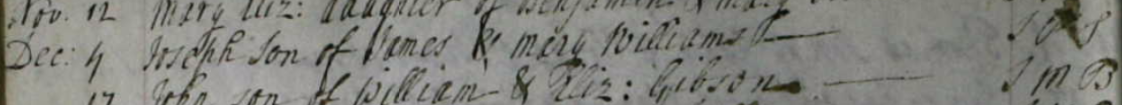 Nov. 12 Mary Eliz: daughter of Benjamin & Mary
Dec: 4 Joseph Son of James & mary Williams S
17 John son of William & Eliz: Gibson S M B